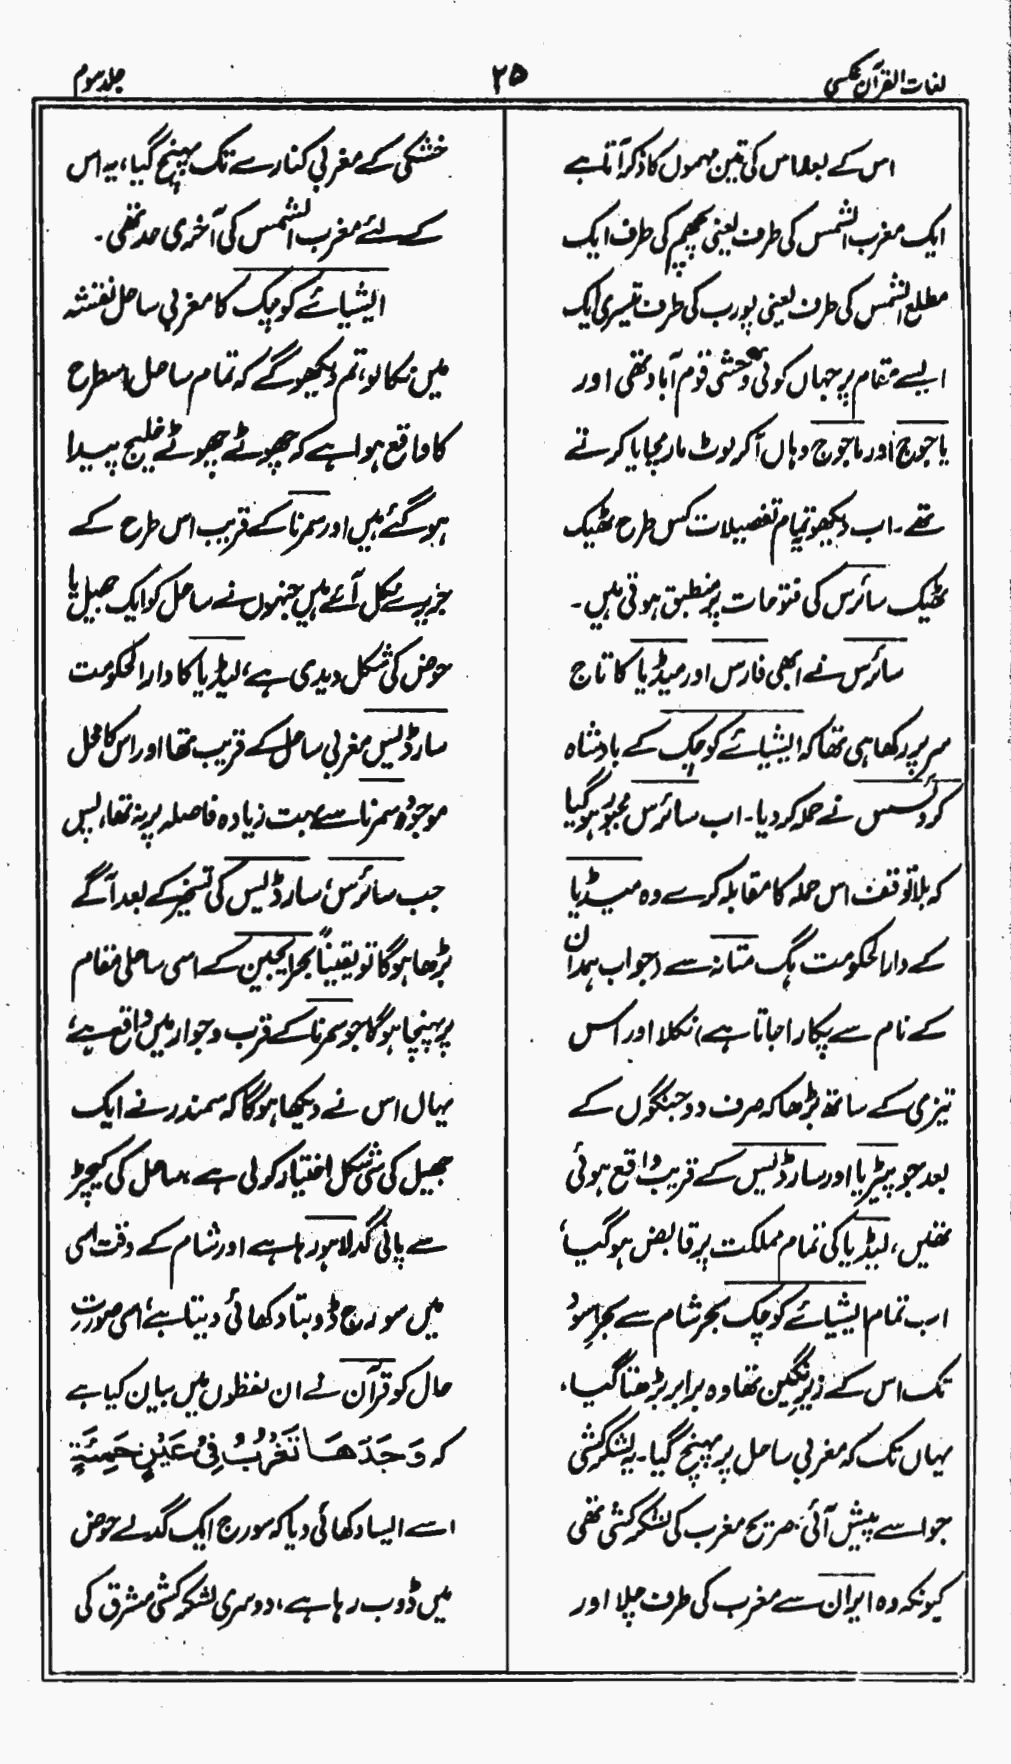 لغات القرآن عکسی
۲۵
جلد سوم
اس کے بعد اس کی تین مہموں کا ذکر آتا ہے
ایک مغرب الشمس کی طرف یعنی پچھم کی طرف ایک
مطلع الشمس کی طرف یعنی پورب کی طرف تیسری ایک
ایسے مقام پر جہاں کوئی وحشی قوم آباد تھی اور
یاجوج اور ماجوج وہاں آکر لوٹ مار مچایا کرتے
تھے۔ اب دیکھو یہ تمام تفصیلات کس طرح ٹھیک
ٹھیک سائرس کی فتوحات پر منطبق ہوتی ہیں۔
سائرس نے ابھی فارس اور میڈیا کا تاج
سر پر رکھا ہی تھا کہ ایشیائے کوچک کے بادشاہ
کرؤسس نے حملہ کر دیا۔ اب سائرس مجبور ہوگیا
کہ بلا توقف اس حملہ کا مقابلہ کرے وہ میڈیا
کے دار الحکومت ہگ متانہ سے (جو اب ہمدان
کے نام سے پکارا جاتا ہے) نکلا اور اس
تیزی کے ساتھ بڑھا کہ صرف دو جنگوں کے
بعد جو پیٹریا اور سارڈیس کے قریب واقع ہوئی
تھیں، لیڈیا کی تمام مملکت پر قابض ہوگیا،
اب تمام ایشیائے کوچک بحر شام سے بحر اسود
تک اس کے زیر نگین تھا وہ برابر بڑھتا گیا،
یہاں تک کہ مغربی ساحل پر پہنچ گیا۔ یہ لشکر کشی
جو اسے پیش آئی صریح مغرب کی لشکر کشی تھی
کیونکہ وہ ایران سے مغرب کی طرف چلا اور
خشکی کے مغربی کنارے تک پہنچ گیا، یہ اس
کے لئے مغرب الشمس کی آخری حد تھی۔
ایشیائے کوچک کا مغربی ساحل نقشہ
میں نکالو، تم دیکھو گے کہ تمام ساحل اسطرح
کا واقع ہوا ہے کہ چھوٹے چھوٹے خلیج پیدا
ہو گئے ہیں اور سمرنا کے قریب اس طرح کے
جزیرے نکل آئے ہیں جنہوں نے ساحل کو ایک جھیل یا
حوض کی شکل دیدی ہے، لیڈیا کا دار الحکومت
سارڈیس مغربی ساحل کے قریب تھا اور اس کا محل
موجودہ سمرنا سے بہت زیادہ فاصلہ پر نہ تھا، پس
جب سائرس، سارڈیس کی تسخیر کے بعد آگے
بڑھا ہوگا تو یقیناً بحر ایجین کے اسی ساحلی مقام
پر پہنچا ہوگا جو سمرنا کے قرب و جوار میں واقع ہے،
یہاں اس نے دیکھا ہوگا کہ سمندر نے ایک
جھیل کی سی شکل اختیار کر لی ہے، ساحل کی کیچڑ
سے پانی گدلا ہو رہا ہے اور شام کے وقت اسی
میں سورج ڈوبتا دکھائی دیتا ہے، اسی صورت
حال کو قرآن نے ان لفظوں میں بیان کیا ہے
کہ وَجَدَهَا تَغْرُبُ فِيْ عَيْنٍ حَمِئَةٍ
اسے ایسا دکھائی دیا کہ سورج ایک گدلے حوض
میں ڈوب رہا ہے، دوسری لشکر کشی مشرق کی